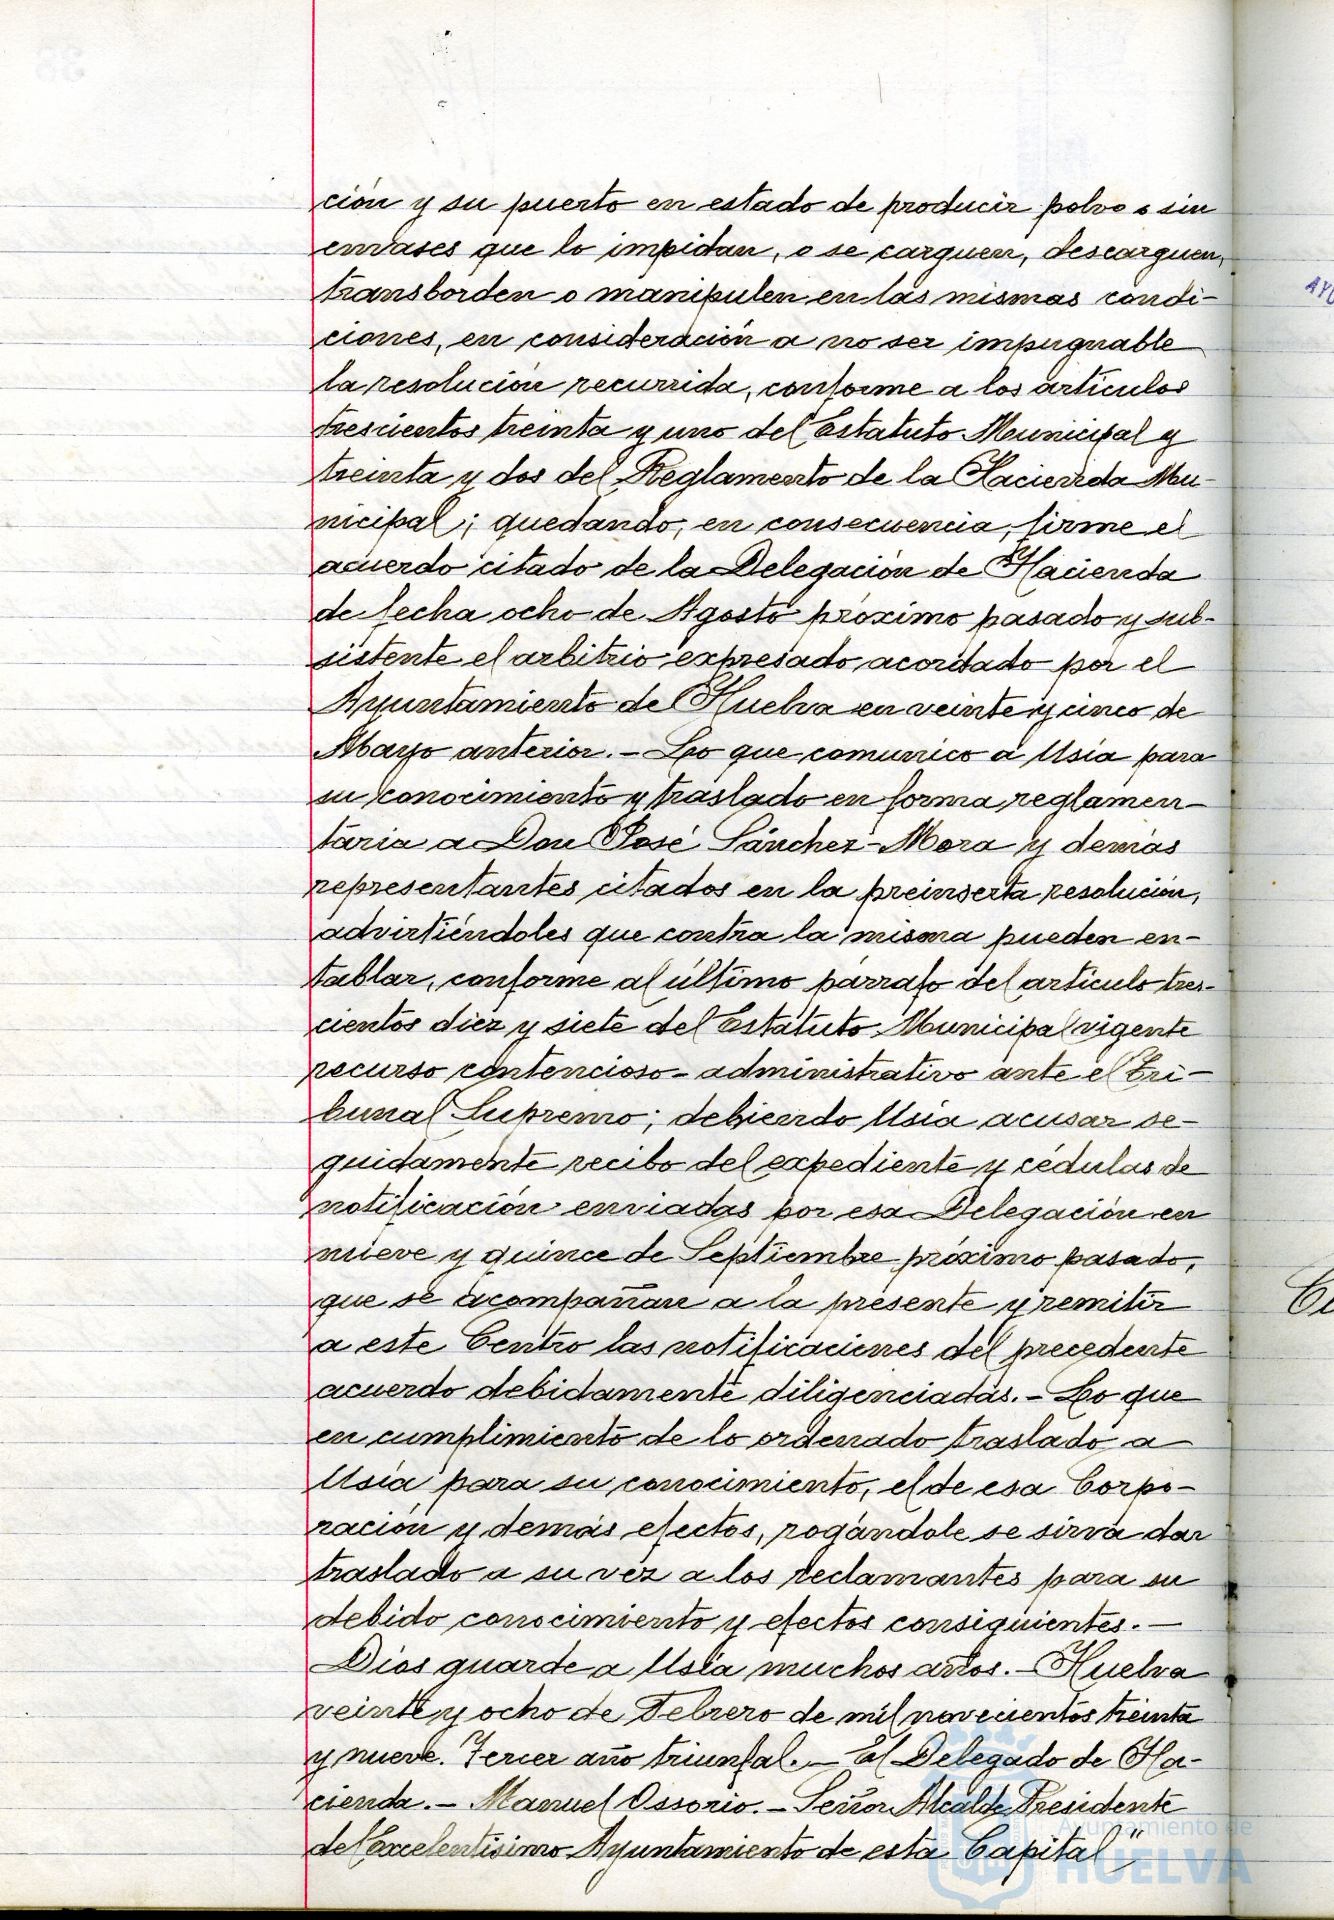 ción y su puerto en estado de producir polvo o sin
envases que lo impidan, o se carguen, descarguen,
transborden o manipulen en las mismas condi-
ciones, en consideración a no ser impugnable
la resolución recurrida, conforme a los artículos
trescientos treinta y uno del Estatuto Municipal y
treinta y dos del Reglamento de la Hacienda Mu-
nicipal; quedando, en consecuencia, firme el
acuerdo citado de la Delegación de Hacienda
de fecha ocho de Agosto próximo pasado y sub-
sistente el arbitrio expresado acordado por el
Ayuntamiento de Huelva en veinte y cinco de
Mayo anterior.- Lo que comunico a Usía para
su conocimiento y traslado en forma reglamen-
taria a Don José Sánchez-Mora y demás
representantes citados en la preinserta resolución,
advirtiéndoles que contra la misma pueden en-
tablar, conforme al último párrafo del artículo tres-
cientos diez y siete del Estatuto Municipal vigente
recurso contencioso-administrativo ante el Tri-
bunal Supremo; debiendo Usía acusar se-
guidamente recibo del expediente y cédulas de
notificación enviadas por esa Delegación en
nueve y quince de Septiembre próximo pasado,
que se acompañan a la presente y remitir
a este Centro las notificaciones del precedente
acuerdo debidamente diligenciadas.- Lo que
en cumplimiento de lo ordenado traslado a
Usía para su conocimiento, el de esa Corpo-
ración y demás efectos, rogándole se sirva dar
traslado a su vez a los reclamantes para su
debido conocimiento y efectos consiguientes.-
Dios guarde a Usía muchos años.- Huelva
veinte y ocho de Febrero de mil novecientos treinta
y nueve. Tercer año triunfal.- El Delegado de Ha-
cienda.- Manuel Ossorio.- Señor Alcalde Presidente
del Excelentísimo Ayuntamiento de esta Capital"
Ayuntamiento de
HUELVA